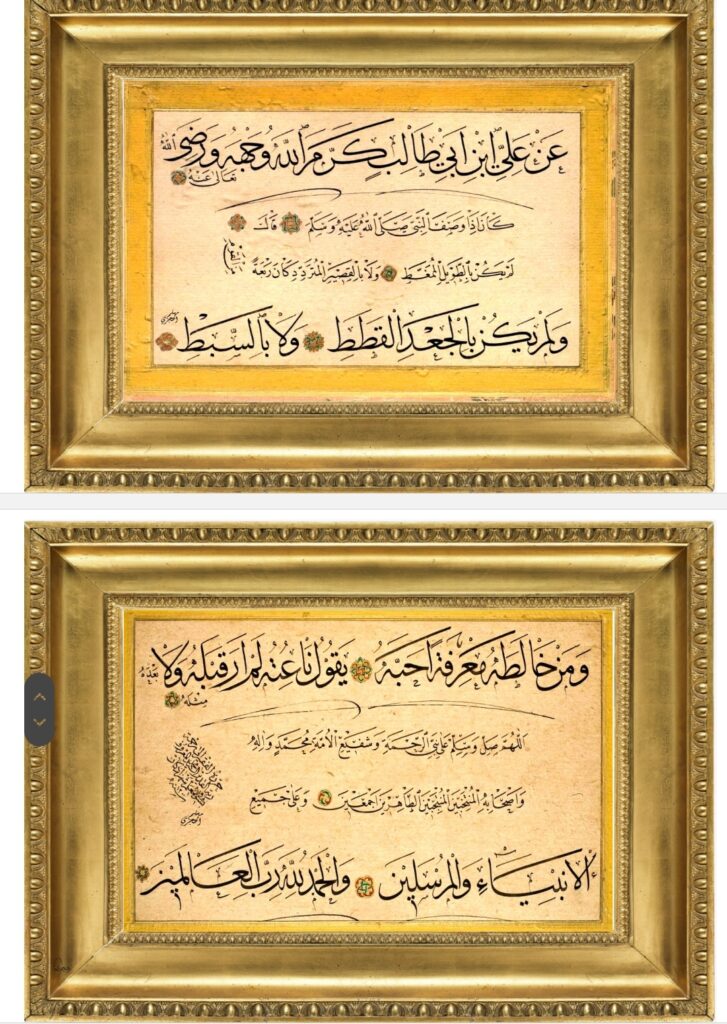 عَنْ عَلِيِّ ابْنِ اَبِي طَالِبٍ كَرَّمَ اللّٰهُ وَجْهَهُ وَرَضِيَ اللّٰهُ
تَعَالٰى عَنْهُ
كَانَ اِذَا وَصَفَ النَّبِيَّ صَلَّى اللّٰهُ عَلَيْهِ وَسَلَّمَ قَالَ
لَمْ يَكُنْ بِالطَّوِيلِ الْمُمَغَّطِ وَلَا بِالْقَصِيرِ الْمُتَرَدِّدِ كَانَ رَبْعَةً
مِنَ الْقَوْمِ
وَلَمْ يَكُنْ بِالْجَعْدِ الْقَطَطِ وَلَا بِالسَّبِطِ
وَمَنْ خَالَطَهُ مَعْرِفَةً اَحَبَّهُ يَقُولُ نَاعِتُهُ لَمْ اَرَ قَبْلَهُ وَلَا بَعْدَهُ
مِثْلَهُ
اَللّٰهُمَّ صَلِّ وَسَلِّمْ عَلٰى نَبِيِّ الرَّحْمَةِ وَشَفِيعِ الْاُمَّةِ مُحَمَّدٍ وَاٰلِهِ
وَاَصْحَابِهِ الْمُنْتَخَبِينَ الْمُنْتَجَبِينَ الطَّاهِرِينَ اَجْمَعِينَ وَعَلٰى جَمِيعِ
الْاَنْبِيَاءِ وَالْمُرْسَلِينَ وَالْحَمْدُ لِلّٰهِ رَبِّ الْعَالَمِينَ